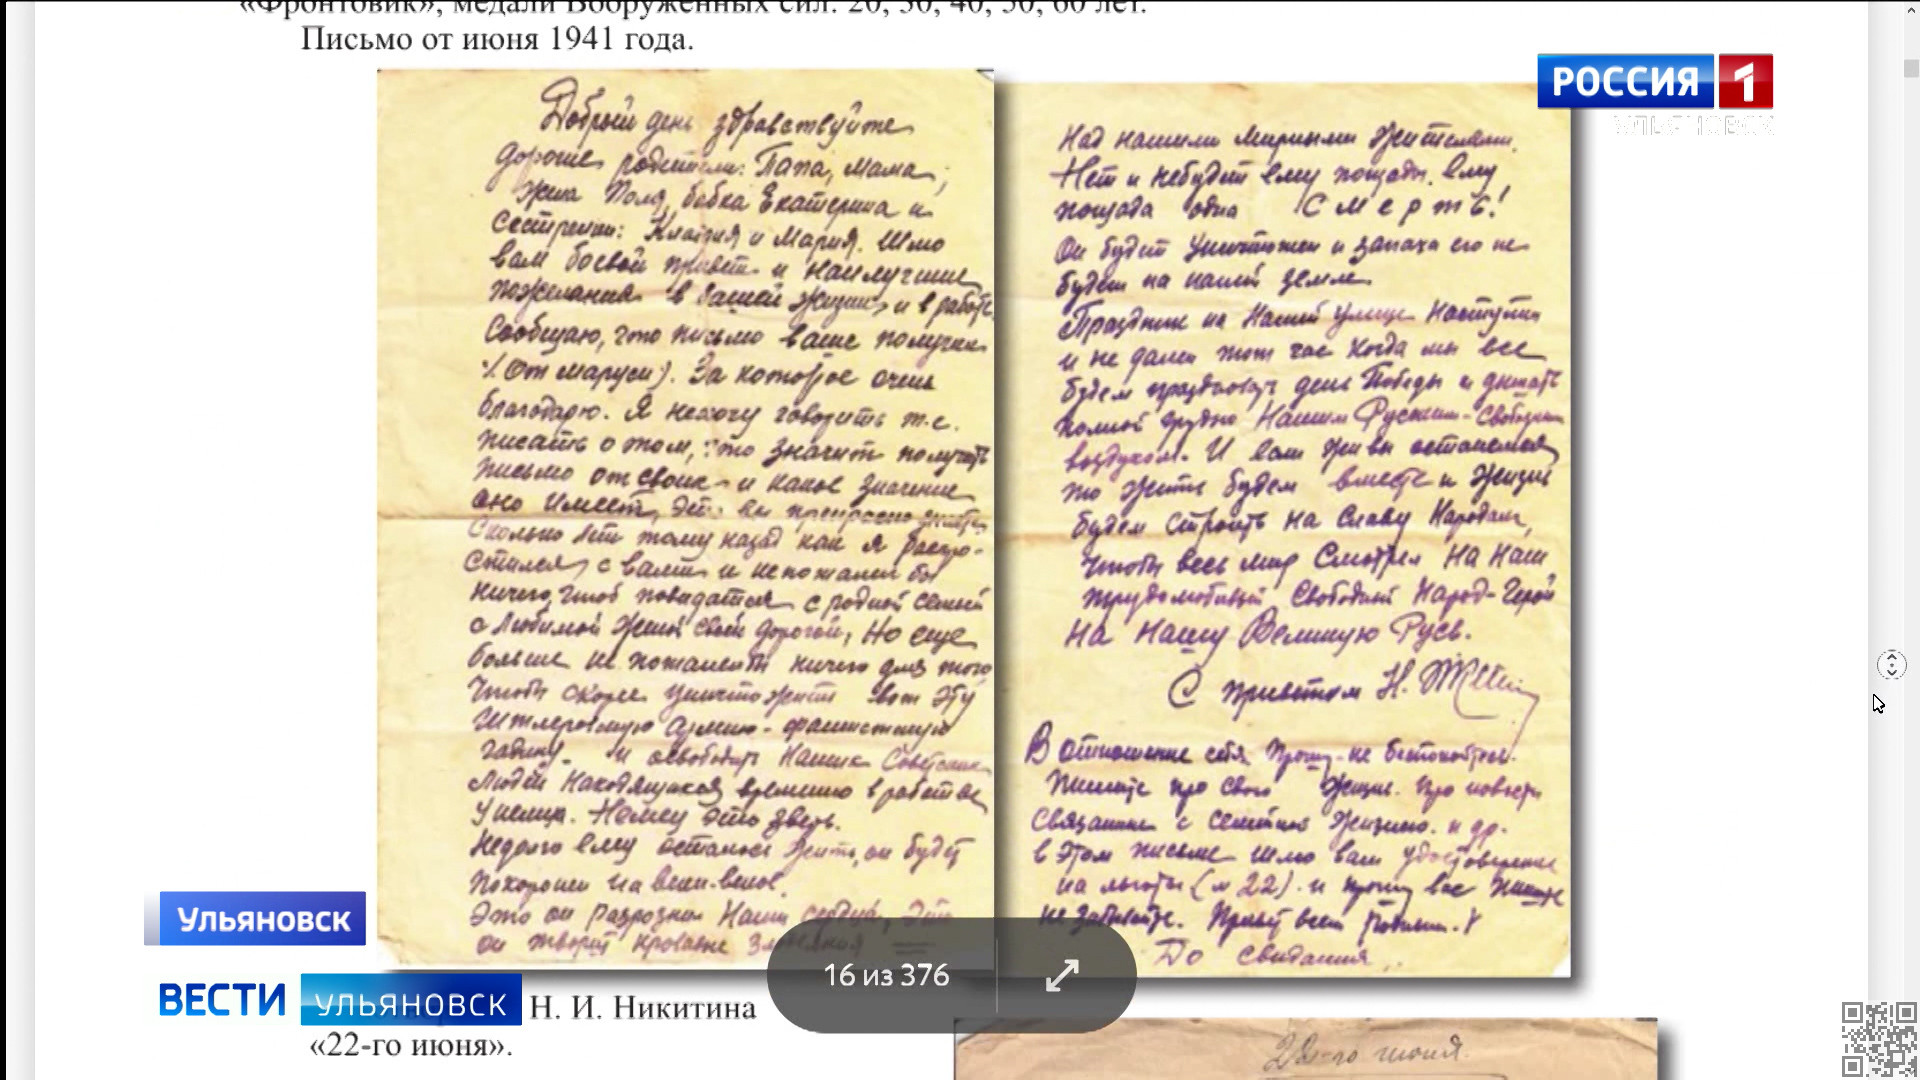 «Фронтовик», медали Вооруженных сил: 20, 30, 40, 50, 60 лет.
Письмо от июня 1941 года.
РОССИЯ 1
УЛЬЯНОВСК
Добрый день здравствуйте
дорогие родители: Папа, Мама,
жена Поля, бабка Екатерина и
сестренки: Клавдия и Мария. Шлю
вам боевой привет и наилучшие
пожелания в вашей жизни и в работе.
Сообщаю, что письмо ваше получил
(От Маруси). За которое очень
благодарю. Я нехочу говорить т.е.
писать о том, что значит получить
письмо от своих и какое значение
оно имеет, это вы прекрасно знаете
Сколько лет тому назад как я распро-
стился с вами и непожалел бы
ничего, чтоб повидаться с родной семьей
с любимой женой своей дорогой, Но еще
больше не пожалел бы ничего для того
Чтобы скорее уничтожить вот эту
Гитлеровскую Армию - фашистскую
гадину и освободить Наших Советских
Людей Находящихся временно в рабстве
У немца. Немец это зверь.
Недолго ему осталось жить, он будет
похоронен на веки-веков.
Это он Наши сердца, Это
он творит кровавые
Над нашими мирными жителями.
Нет и небудет ему пощады. Ему
пощада одна Смерть!
Он будет Уничтожен и запаха его не
будет на нашей земле.
Праздник на Нашей улице Наступит
и не далек тот час когда мы все
будем праздновать день Победы и дышать
полной грудью Нашим Руским - Свободным
воздухом. И если живы останемся
то жить будем вместе и Жизнь
будем строить на Славу Народам,
Чтобы весь мир Смотрел На Наш
трудолюбивый Свободный Народ-Герой
На Нашу Великую Русь.
С приветом Н.
В отношение себя Прошу не беспокойтесь.
Пишите про свою Жизнь. Про новости
связанные с семейной жизнью и др.
в Этом письме шлю вам удостоверение
на льготы (№ 22). и прошу вас пишите
не забывайте. Привет всем Родным.
До свидания.
Ульяновск
ВЕСТИ УЛЬЯНОВСК
Н. И. Никитина
«22-го июня».
16 из 376
22-го июня.